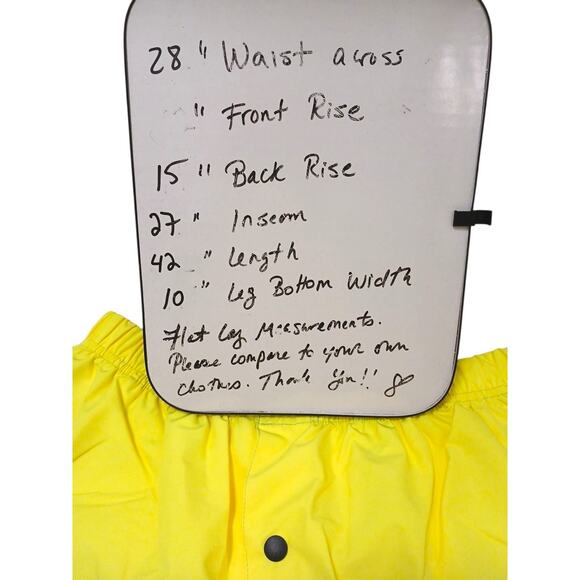 28 " Waist across
" Front Rise
15 " Back Rise
27 " Inseam
42 " Length
10 " Leg Bottom Width
Flat Lay Measurements.
Please compare to your own
clothes. Thank You!!